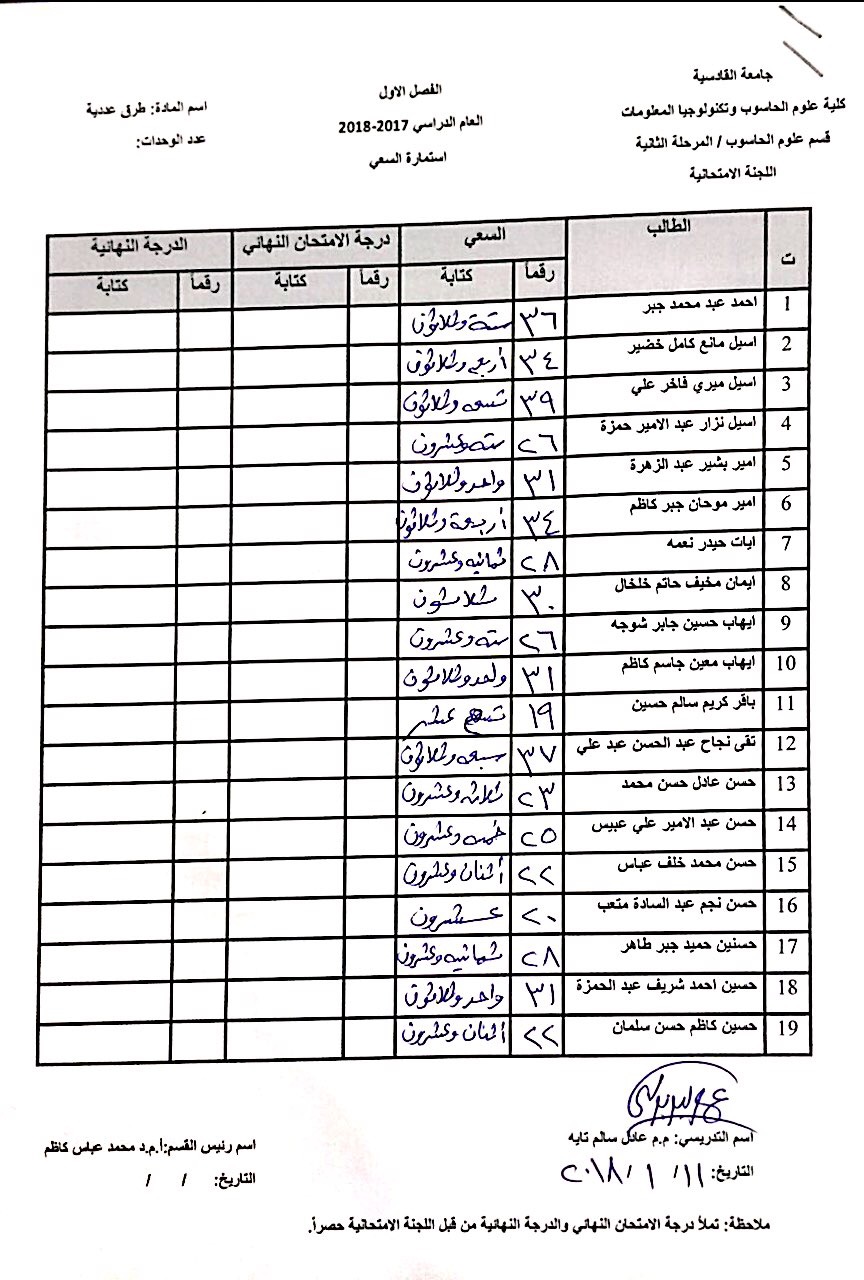 جامعة القادسية
كلية علوم الحاسوب وتكنولوجيا المعلومات
قسم علوم الحاسوب / المرحلة الثانية
اللجنة الامتحانية
الفصل الاول
العام الدراسي 2017-2018
استمارة السعي
اسم المادة: طرق عددية
عدد الوحدات:
ت الطالب السعي درجة الامتحان النهائي الدرجة النهائية
رقماً كتابة رقماً كتابة رقماً كتابة
1 احمد عبد محمد جبر ٣٦ ستة وثلاثون
2 اسيل مانع كامل خضير ٣٤ أربعه وثلاثون
3 اسيل ميري فاخر علي ٣٩ تسعه وثلاثون
4 اسيل نزار عبد الامير حمزة ٢٦ سته وعشرون
5 امير بشير عبد الزهرة ٣١ واحد وثلاثون
6 امير موحان جبر كاظم ٣٤ أربعة وثلاثون
7 ايات حيدر نعمه ٢٨ ثمانيه وعشرون
8 ايمان مخيف حاتم خلخال ٣٠ ثلاثون
9 ايهاب حسين جابر شوجه ٢٦ سته وعشرون
10 ايهاب معين جاسم كاظم ٣١ واحد وثلاثون
11 باقر كريم سالم حسين ١٩ تسع عشر
12 تقى نجاح عبد الحسن عبد علي ٣٧ سبعه وثلاثون
13 حسن عادل حسن محمد ٢٣ ثلاثه وعشرون
14 حسن عبد الامير علي عبيس ٢٥ خمسه وعشرون
15 حسن محمد خلف عباس ٢٢ أثنان وعشرون
16 حسن نجم عبد السادة متعب ٢٠ عشرون
17 حسنين حميد جبر طاهر ٢٨ ثمانيه وعشرون
18 حسين احمد شريف عبد الحمزة ٣١ واحد وثلاثون
19 حسين كاظم حسن سلمان ٢٢ أثنان وعشرون
اسم التدريسي: م.م عادل سالم تايه
التاريخ: ١١/ ١ /٢٠١٨
اسم رئيس القسم:أ.م.د محمد عباس كاظم
التاريخ: / /
ملاحظة: تملأ درجة الامتحان النهائي والدرجة النهائية من قبل اللجنة الامتحانية حصراً.